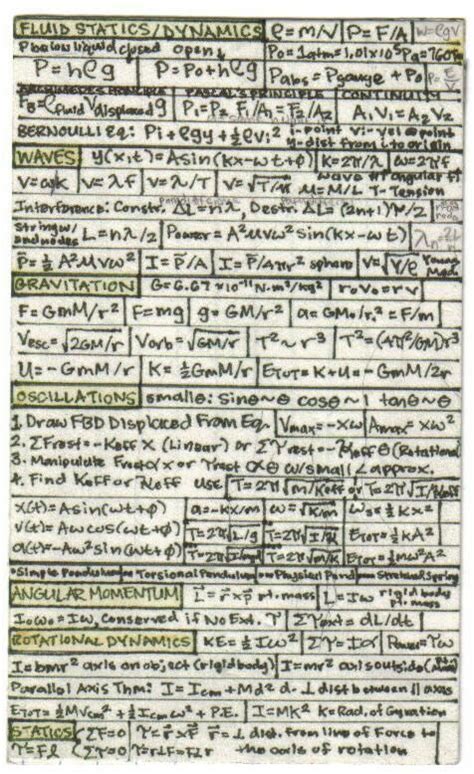 FLUID STATICS/DYNAMICS ρ=m/V P=F/A w=ρgV
P below liquid closed open P₀=1atm=1.01x10⁵Pa=760
P=hρg P=P₀+hρg Pabs=Pgauge+P₀
ARCHIMEDES PRINCIPLE PASCAL'S PRINCIPLE CONTINUITY
F_B=ρfluid Vdisplaced g P₁=P₂ F₁/A₁=F₂/A₂ A₁V₁=A₂V₂
BERNOULLI Eq: Pi+ρgy+½ρvi² i-point vi-vel @ point y-dist from i to origin
WAVES y(x,t)=Asin(kx-ωt+φ) K=2π/λ ω=2πf
V=ω/k V=λf V=λ/T V=√T/μ μ=M/L T-Tension
Interference: Constr. ΔL=nλ, Destr. ΔL=(2n+1)λ/2
String w/ end nodes L=nλ/2 Power=A²μvω²sin(kx-ωt) λn=2L/n
P̄=½A²μvω² I=P̄/A I=P̄/4πr² sphere V=√Y/ρ Young Mod
GRAVITATION G=6.67x10⁻¹¹N·m²/kg² r₀v₀=rv
F=GmM/r² F=mg g=GM/r² a=GM₀/r₀²=F/m
Vesc=√2GM/r Vorb=√GM/r T²~r³ T²=(4π²/GM)r³
U=-GmM/r K=½GmM/r E_TOT=K+U=-GmM/2r
OSCILLATIONS small θ: Sinθ~θ cosθ~1 tanθ~θ
1. Draw FBD Displaced From Eq. Vmax=-xω Amax=xω²
2. ΣFrest=-Keff x (Linear) or Στrest=-ϰeff θ (Rotational
3. Manipulate Frest α x or τrest α θ w/small ∠ approx.
4. Find Keff or ϰeff Use T=2π√m/Keff or T=2π√I/ϰeff
x(t)=Asin(ωt+φ) a=-kx/m ω=√K/m W₀=½kx²
v(t)=Aωcos(ωt+φ) T=2π√L/g T=2π√I/ϰ E_TOT=½KA²
a(t)=-Aω²sin(ωt+φ) T=2π√I/mgd T=2π√m/k E_TOT=½mω²A²
Simple Pendulum Torsional Pendulum Physical Pend Stretched Spring
ANGULAR MOMENTUM L=r×p pt. mass L=Iω rigid body pt. mass
I₀ω₀=Iω, Conserved if No Ext. τ Στext=dL/dt
ROTATIONAL DYNAMICS KE=½Iω² Στ=Iα Power=τω
I=bmr² axis on object (rigid body) I=mr² axis outside
Parallel Axis Thm: I=Icm+Md² d-⊥ dist between || axis
E_TOT=½MVcm²+½Icmω²+P.E. I=MK² K=Rad. of Gyration
STATICS ΣF=0 τ=r×F r=⊥ dist. from line of Force to
τ=Fl Στ=0 τ=r⊥F=F⊥r the axis of rotation